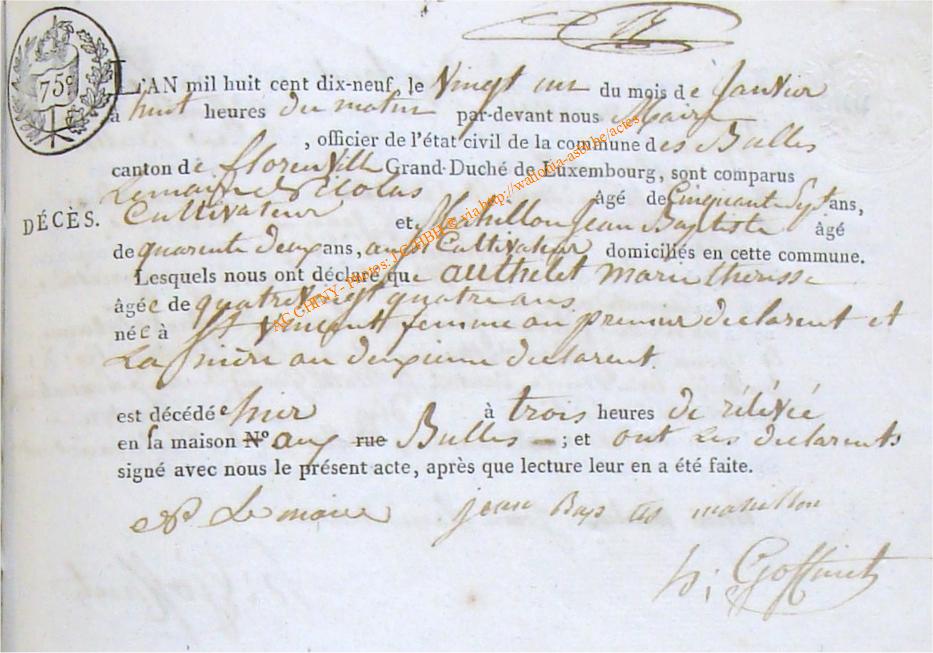 75c
L'AN mil huit cent dix-neuf, le vingt un du mois de janvier
à huit heures du matin par-devant nous Maire
, officier de l'état civil de la commune des Bulles
canton de florenville Grand-Duché de Luxembourg, sont comparus
Lemaire Nicolas âgé de Cinquant Sept ans,
DÉCÈS. Cultivateur et Mahillon Jean Baptiste âgé
de quarent deux ans, aussi Cultivateur domiciliés en cette commune.
Lesquels nous ont déclaré que authelet marie theresse
âgée de quatre vingt quatre ans
née à St vincent femme au premier declarent et
La mère au deuxieme declarent.
est décédée hier à trois heures de rélévée
en sa maison N° aux rue Bulles ; et ont Les declarents
signé avec nous le présent acte, après que lecture leur en a été faite.
N Lemaire jean Bap tis mahillon
h; Goffinet
AC GHNY - Photos: LCHBH © via http://wallonia-asbl.be/actes